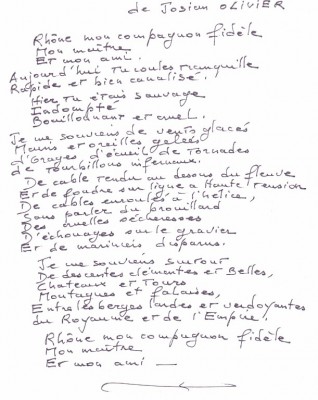 de Josian OLIVIER
Rhône mon compagnon fidèle
Mon maître
Et mon ami.
Aujourd'hui Tu coules tranquille
Rapide et bien canalisé.
Hier Tu étais sauvage
Indompté
Bouillonnant et cruel.
Je me souviens de vents glacés
Mains et oreilles gelées
d'Orages, d'écueil de Tornades
de Tourbillons infernaux.
De cable tendu au dessous du fleuve
Et de foudre sur ligne a Haute Tension
De cables enroulés a l'hélice,
Sans parler du brouillard
Des cruelles sécheresses
D'échouages sur le gravier
Et de mariniers disparus.
Je me souviens surtout
De descentes clémentes et Belles,
Chateaux et Tours
Montagnes et falaises,
Entre les berges landes et verdoyantes
du Royaume et de l'Empire!
Rhône mon compagnon fidèle
Mon maître
Et mon ami —